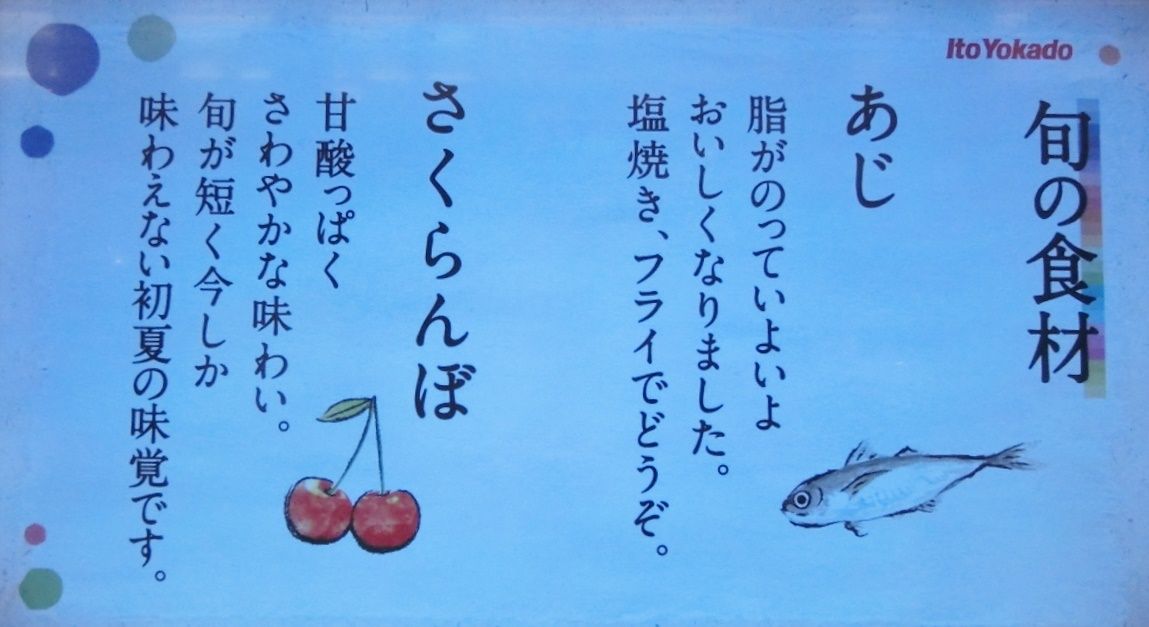 ItoYokado
旬の食材
あじ
脂がのっていよいよ
おいしくなりました。
塩焼き、フライでどうぞ。
さくらんぼ
甘酸っぱく
さわやかな味わい。
旬が短く今しか
味わえない初夏の味覚です。